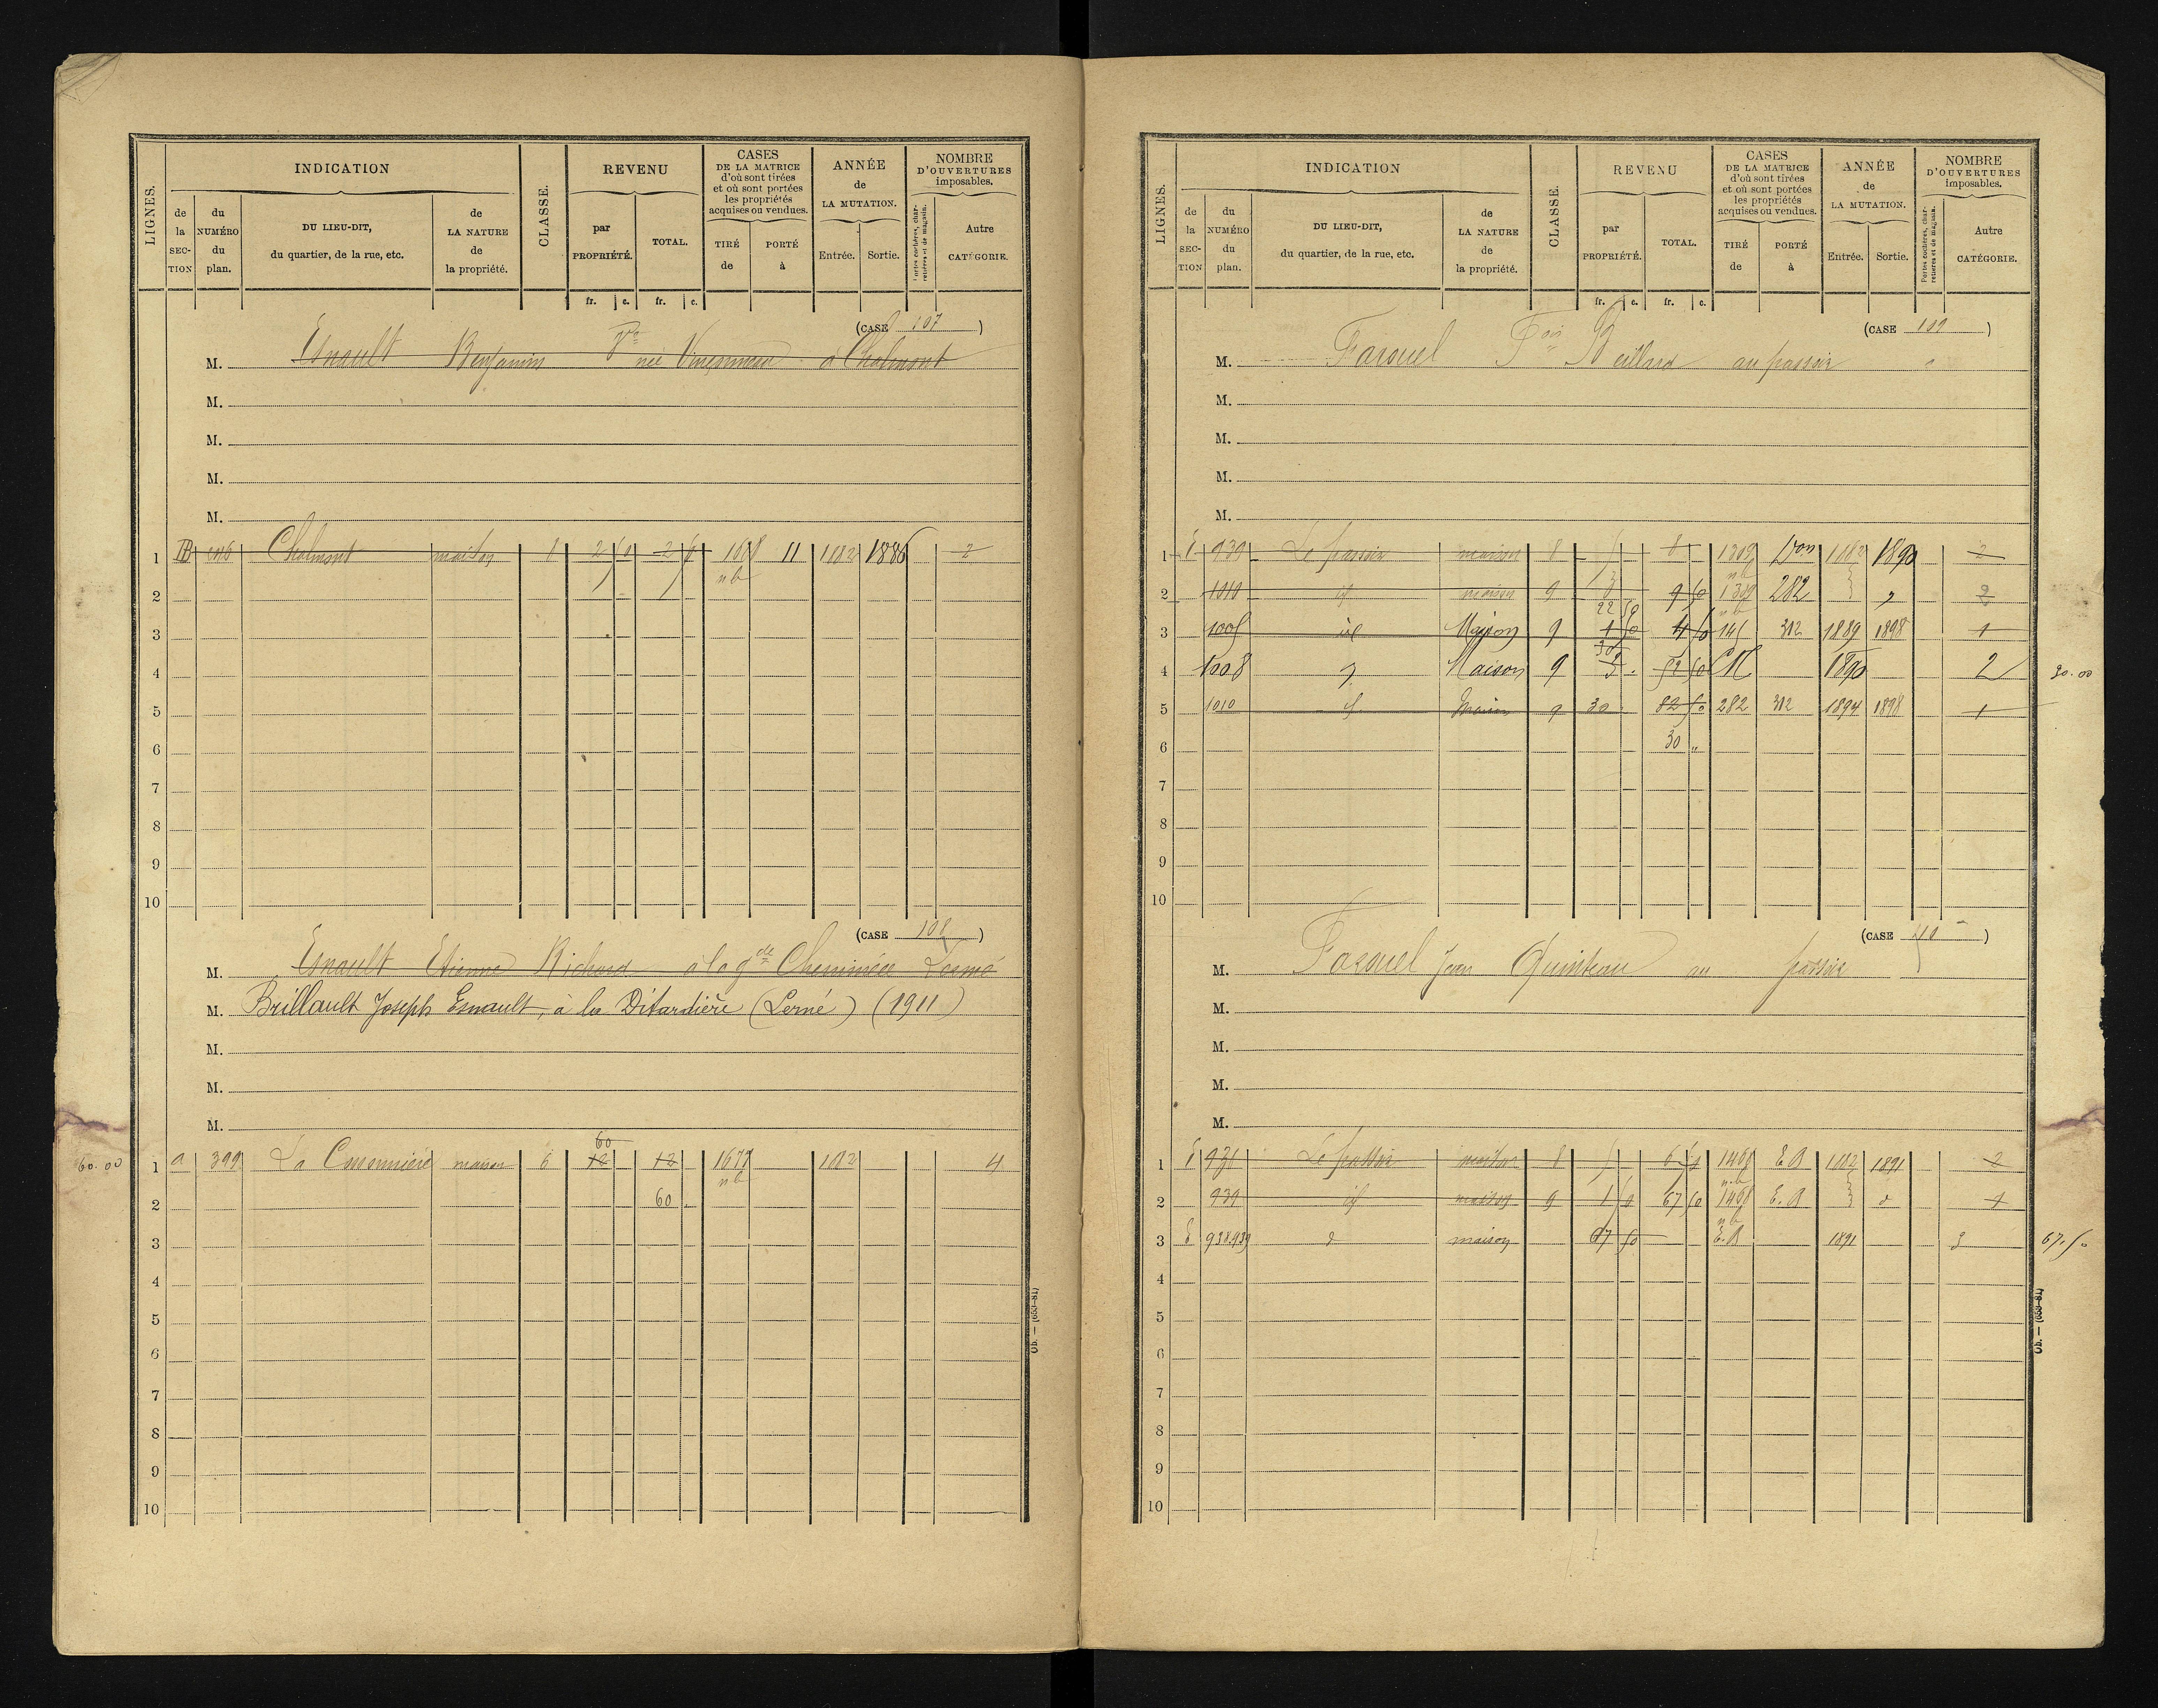 LIGNES.
INDICATION
de la SEC-TION
du NUMÉRO du plan.
DU LIEU-DIT, du quartier, de la rue, etc.
de LA NATURE de la propriété.
CLASSE.
REVENU
par PROPRIÉTÉ.
TOTAL.
CASES DE LA MATRICE d'où sont tirées et où sont portées les propriétés acquises ou vendues.
TIRÉ de
PORTÉ à
ANNÉE de LA MUTATION.
Entrée.
Sortie.
NOMBRE D'OUVERTURES imposables.
Portes cochères, charretières et de magasin.
Autre CATÉGORIE.
fr. c. fr. c.
(CASE 107)
M. Esnault Benjamin Vve née à Chalmont
M.
M.
M.
M.
1 Chalmont maison 8 2 50 2 50 11 1882 1886 2
nb
2
3
4
5
6
7
8
9
10
(CASE 108)
M. Esnault Etienne Richard à la gde Cheminée Lerné
M. Brillault Joseph Esnault, à la Ditardière (Lerné) (1911)
M.
M.
M.
60
60.00 1 a 399 La maison 6 12 12 1677 1882 4
nb
2 60
3
4
5
6
7
8
9
10
Ob. — (653-81)
LIGNES.
INDICATION
de la SEC-TION
du NUMÉRO du plan.
DU LIEU-DIT, du quartier, de la rue, etc.
de LA NATURE de la propriété.
CLASSE.
REVENU
par PROPRIÉTÉ.
TOTAL.
CASES DE LA MATRICE d'où sont tirées et où sont portées les propriétés acquises ou vendues.
TIRÉ de
PORTÉ à
ANNÉE de LA MUTATION.
Entrée.
Sortie.
NOMBRE D'OUVERTURES imposables.
Portes cochères, charretières et de magasin.
Autre CATÉGORIE.
fr. c. fr. c.
(CASE 109)
M. Fois Beillard au passoir
M.
M.
M.
M.
1 E 939 Le passoir maison 8 5 8 1309 1882 1890 2
nb
2 1010 id maison 9 3 9 50 1309 282 " 2
22 50 nb
3 1005 id Maison 9 4 50 145 312 1889 1898 1
30
4 1008 Maison 9 52 50 CN 1890 2 30.00
5 1010 id Maison 9 30 82 50 282 312 1894 1898 1
6 30 "
7
8
9
10
(CASE 110)
M. Jean Quinteau au passoir
M.
M.
M.
M.
1 E Le passoir maison 8 5 6 50 1468 E.R 1882 1891 2
nb
2 939 id maison 9 1 50 67 50 1468 E.R d 1
nb
3 E 938.939 d maison 67 50 E.R 1891 3 67.50
4
5
6
7
8
9
10
Ob. — (653-81)